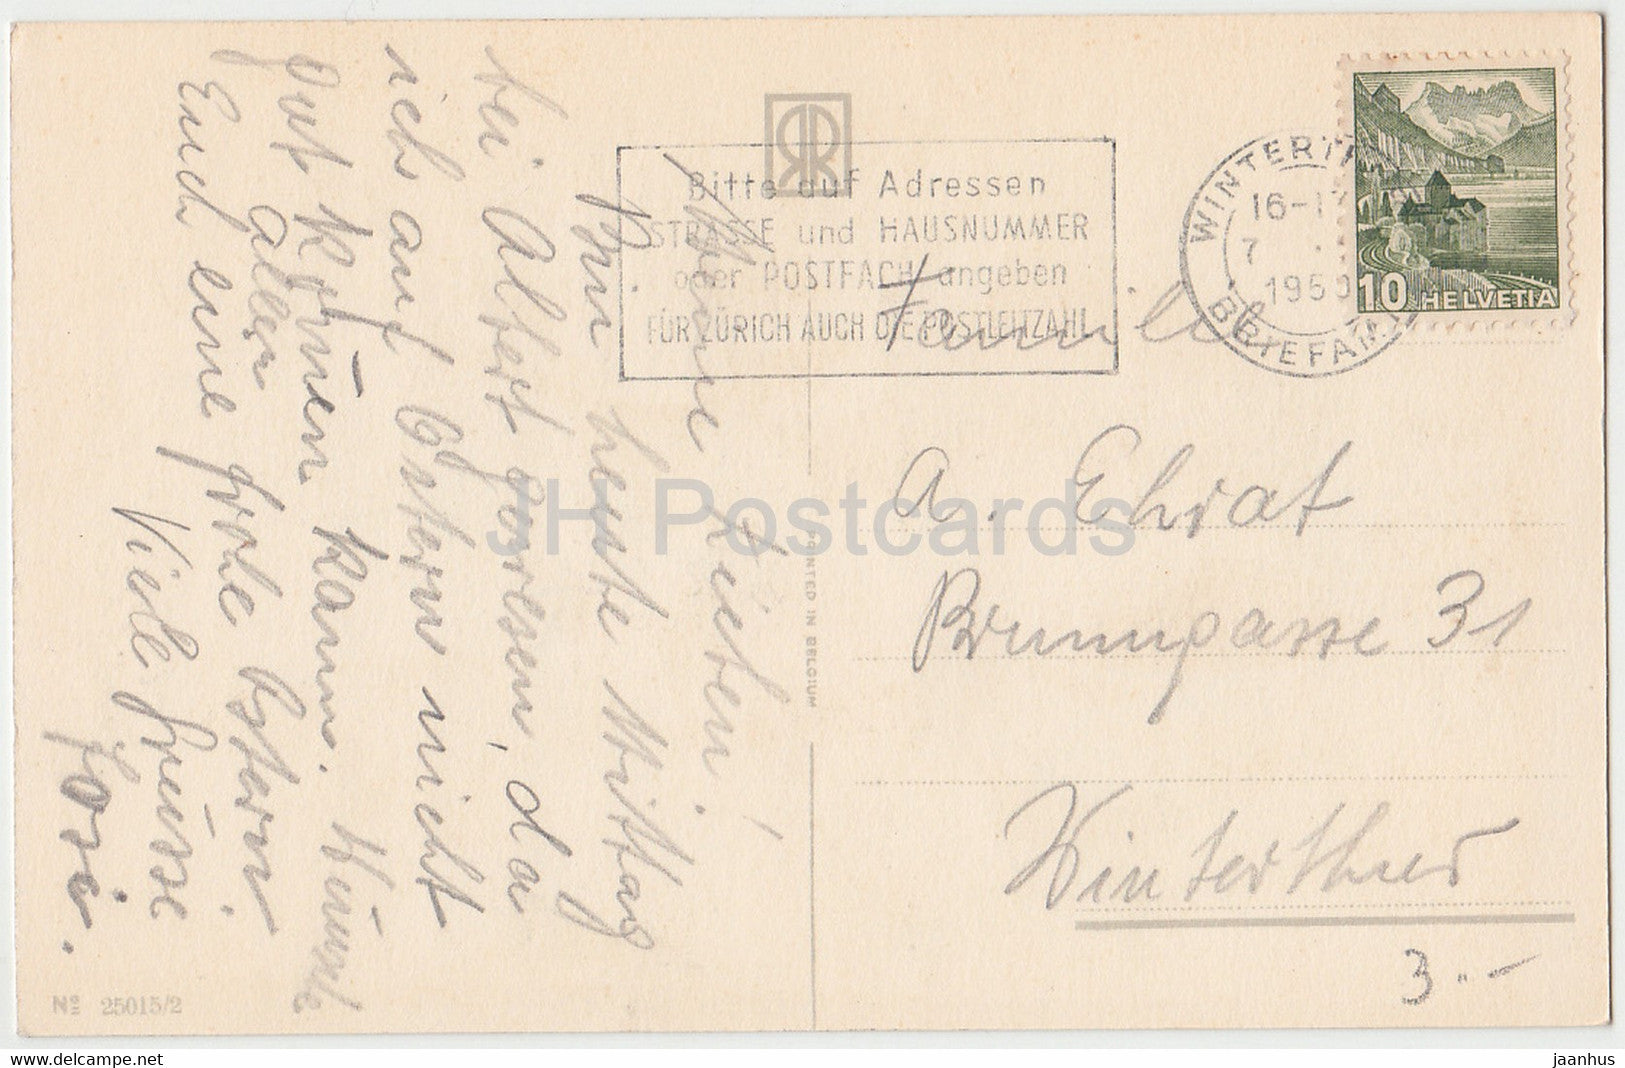 Meine Lieben!
Bin heute Mittag
bei Albert gewesen, da
ich auf Ostern nicht
gut kommen kann. Wünsche
allen
Euch eine frohe Ostern.
Viele Grüsse
Josi.
Nº 25015/2
PRINTED IN BELGIUM
RR
Bitte auf Adressen
STRASSE und HAUSNUMMER
oder POSTFACH angeben
FÜR ZÜRICH AUCH DIE POSTLEITZAHL
WINTERTH
16-17
7
1950
BRIEFAM
10 HELVETIA
Familie
A. Ehrat
Brunngasse 31
Winterthur
3.-
JH Postcards
www.delcampe.net
jaanhus